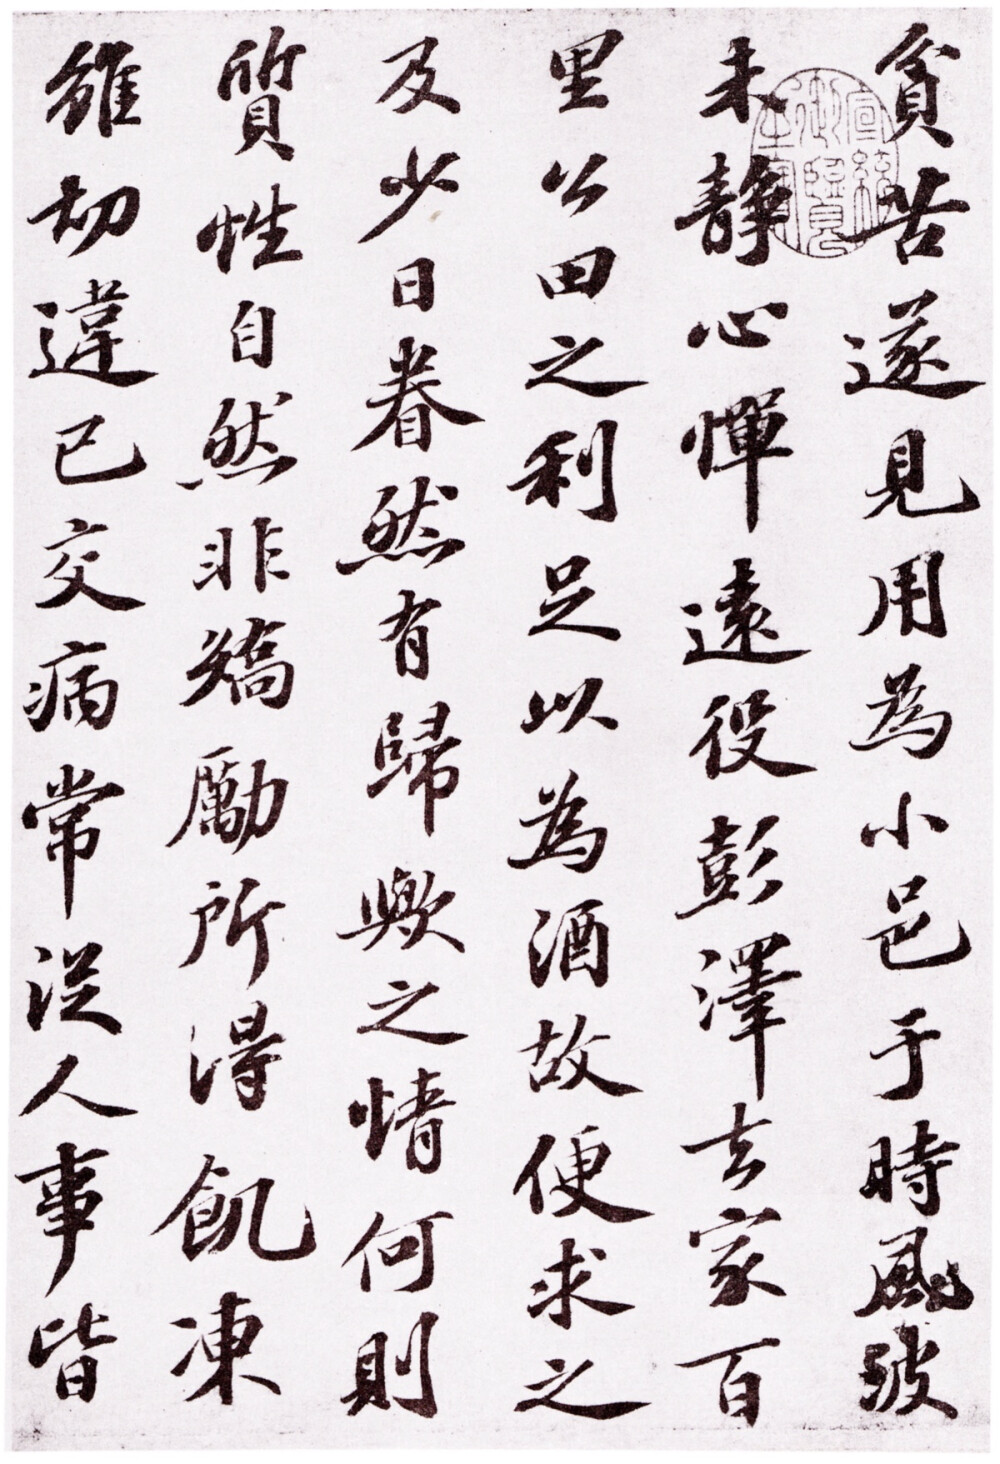 貧苦遂見用為小邑于時風波
未静心憚遠役彭澤去家百
里公田之利足以為酒故便求之
及少日眷然有歸歟之情何則
質性自然非矯勵所得飢凍
雖切違己交病常從人事皆
宣統御覽之寶